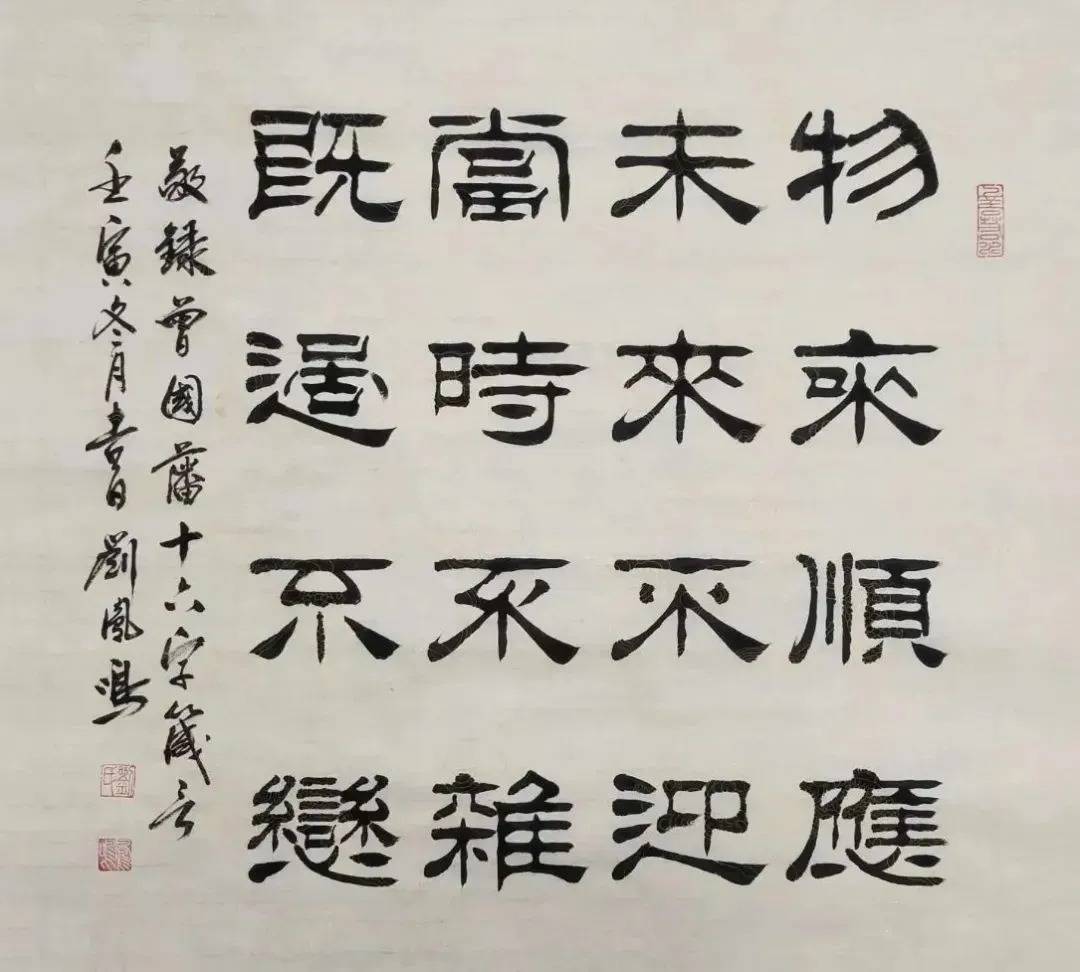 物來順應
未來不迎
當時不雜
既過不戀
敬錄曾國藩十六字箴言
壬寅冬月書日劉鳳鳴